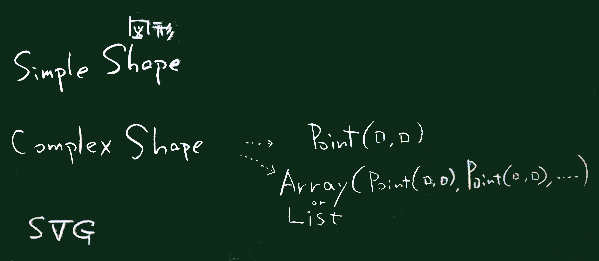 図形
Simple Shape
Complex Shape ...> Point(0,0)
...> Array(Point(0,0), Point(0,0), ....)
or
List
SVG